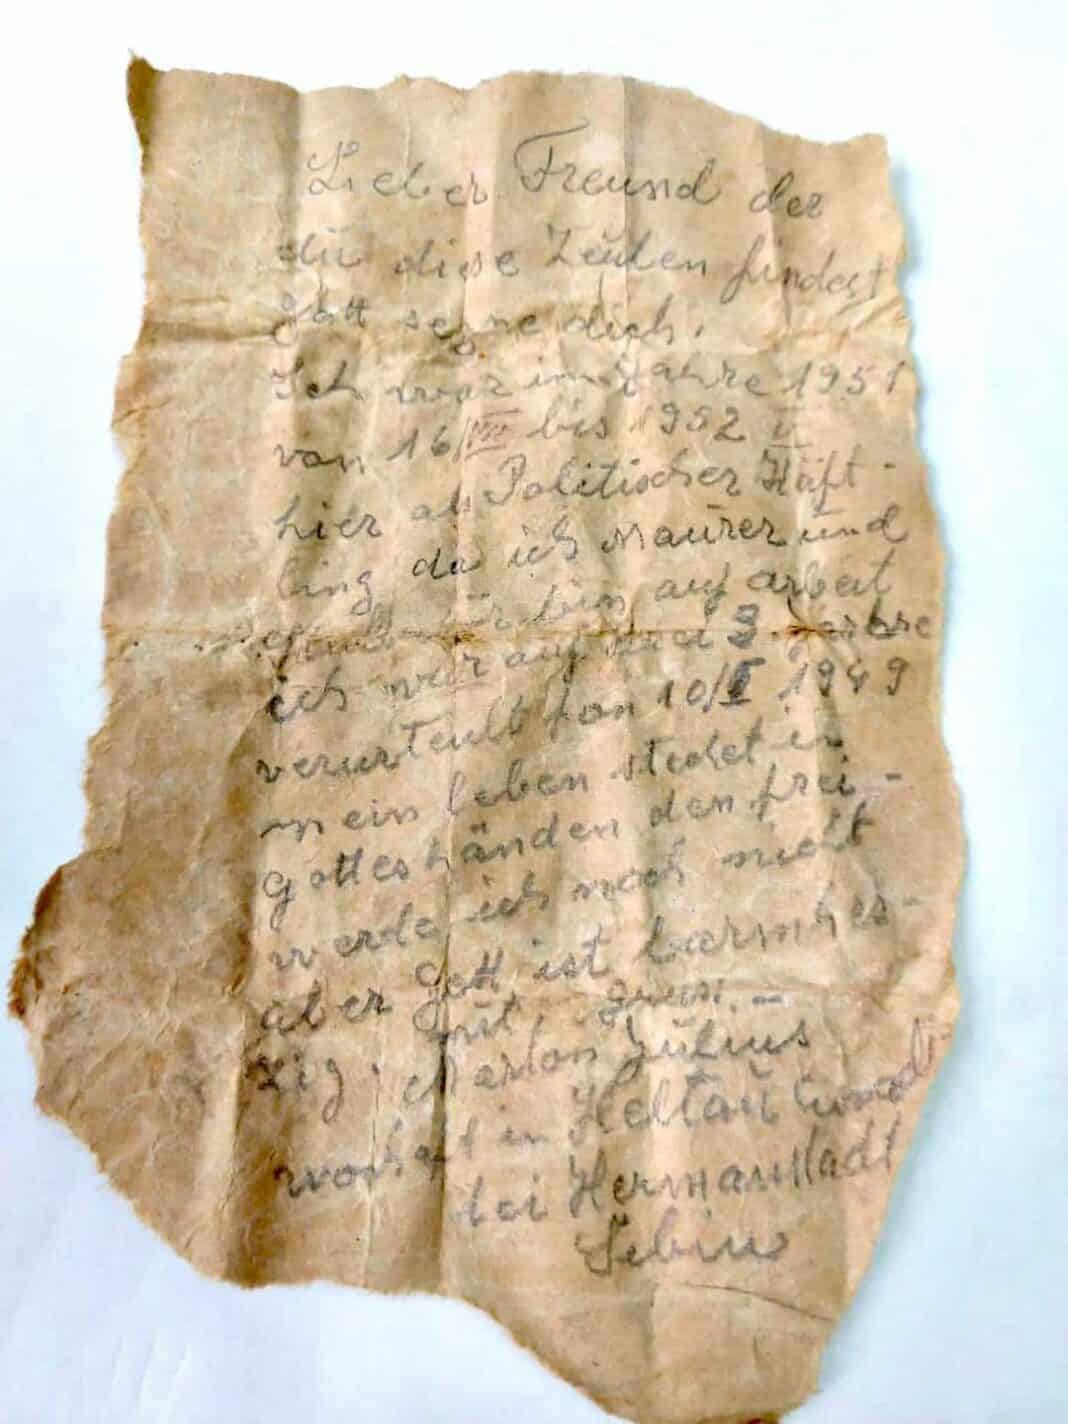 Lieber Freund der
dü diese Zeülen findest
gott segne dich.
Ich war im Jahre 1951
von 16/VIII bis 1952 V
hier als Politischer Häft-
ling da ich Maürer und
bin auf arbeit
ich war auf 3 Jahre
verurteult fon 10/I 1949
mein leben stechet in
gotteshänden den frei-
werde ich noch nicht
aber gott ist barmhez-
zig. mit gruss. -
Marton Jülius
wohaft in Heltaü Cisnadi-
bei Hermanstadt
Sebiu